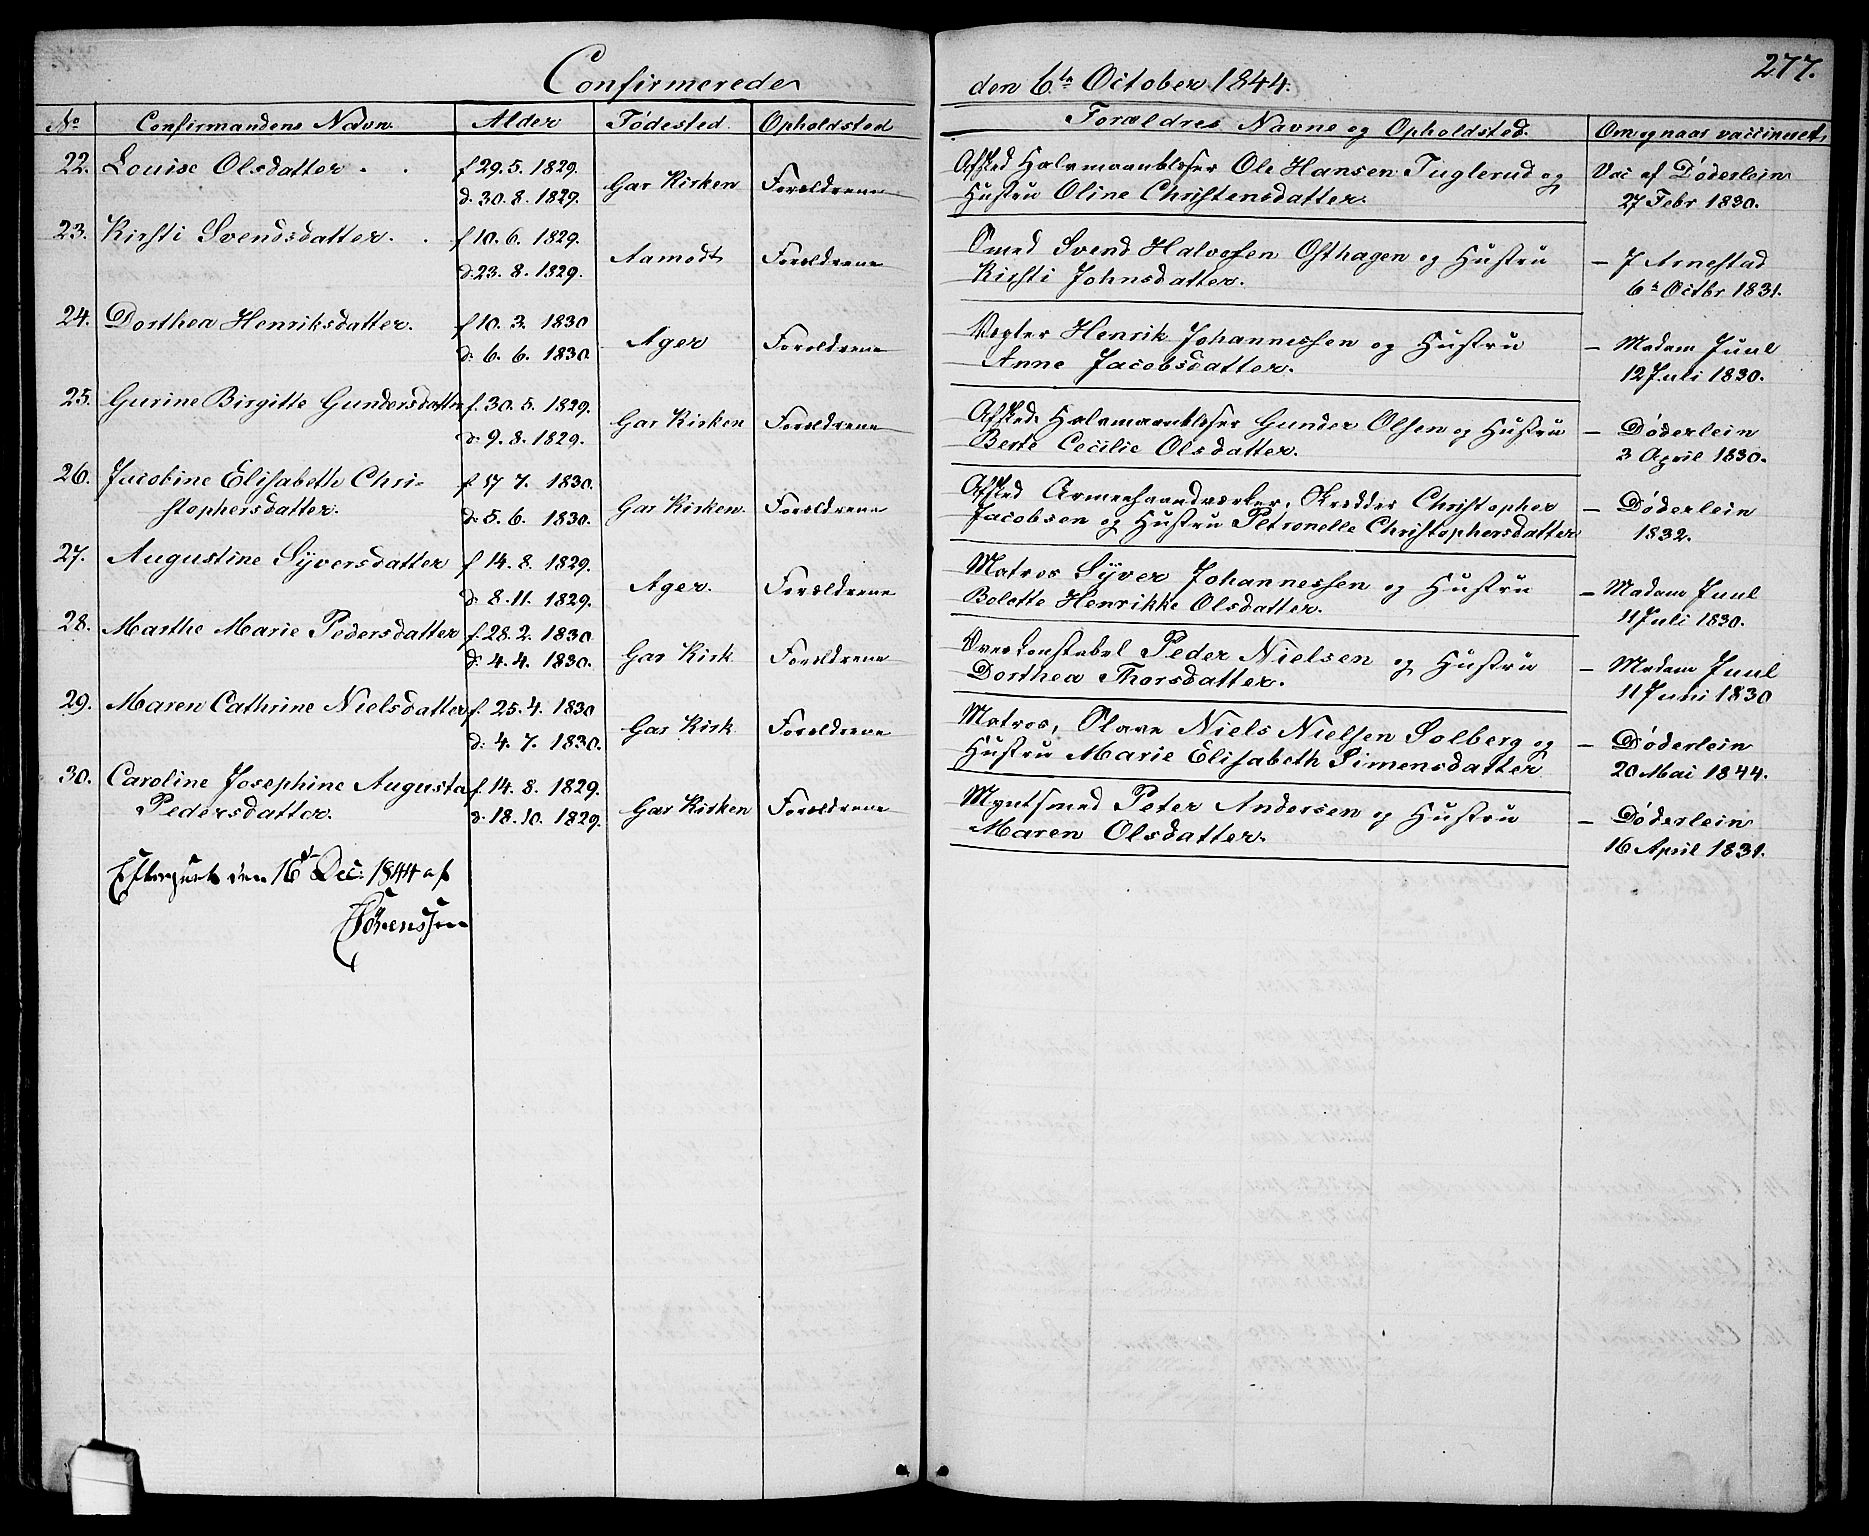 Confirmerede
den 6te October 1844.
277.
No Confirmandens Navn. Alder Fødested. Opholdsted
Forældres Navne og Opholdsted. Om og naar vaccineret.
22. Louise Olsdatter f 29. 5. 1829. Gar Kirken Forældrene Afsked Halvmaanblæser Ole Hansen Fuglerud og Vac af Døderlein
d. 30. 8. 1829. Hustru Oline Christensdatter. 27 Febr 1830.
23. Kirsti Svendsdatter. f 10. 6. 1829. Aamodt Forældrene Smed Svend Halvorsen Osthagen og Hustru — J Arnestad
d. 23. 8. 1829. Kirsti Johnsdatter. 6te Octbr 1831.
24. Dorthea Henriksdatter. f 10. 3. 1830 Ager Forældrene Vægter Henrik Johannessen og Hustru — Madam Juul
d. 6. 6. 1830 Anne Jacobsdatter. 12 Juli 1830.
25. Gurine Birgitte Gundersdatter f. 30. 5. 1829. Gar Kirken Forældrene Afsked. Halvmaanblæser Gunder Olsen og Hustru — Døderlein
d. 9. 8. 1829. Berte Cecilie Olsdatter. 3 April 1830.
26. Jacobine Elisabeth Chri- f 17 7. 1830. Gar Kirken. Forældrene Afsked Armeehaandværker, Skrædder Christopher — Døderlein
stophersdatter. d. 5. 6. 1830. Jacobsen og Hustru Petronelle Christophersdatter 1832.
27. Augustine Syversdatter f 14. 8. 1829. Ager. Forældrene Matros Syver Johannessen og Hustru — Madam Juul
d. 8. 11. 1829. Bolette Henrikke Olsdatter. 11 Juli 1830.
28. Marthe Marie Pedersdatter f. 28. 2. 1830 Gar Kirk Forældrene Overkonstabel Peder Nielsen og Hustru — Madam Juul
d. 4. 4. 1830. Dorthea Thorsdatter. 11 Juni 1830
29. Maren Cathrine Nielsdatter f. 25. 4. 1830 Gar Kirk Forældrene Matros, Slave Niels Nielsen Solberg og — Døderlein
d. 4. 7. 1830. Hustru Marie Elisabeth Simensdatter 20 Mai 1844.
30. Caroline Josephine Augusta f. 14. 8. 1829. Gar Kirken Forældrene Myntsmed Peter Andersen og Hustru — Døderlein
Pedersdatter. d. 18. 10. 1829. Maren Olsdatter. 16 April 1831.
den 16de Dec: 1844 af
Sörenssen